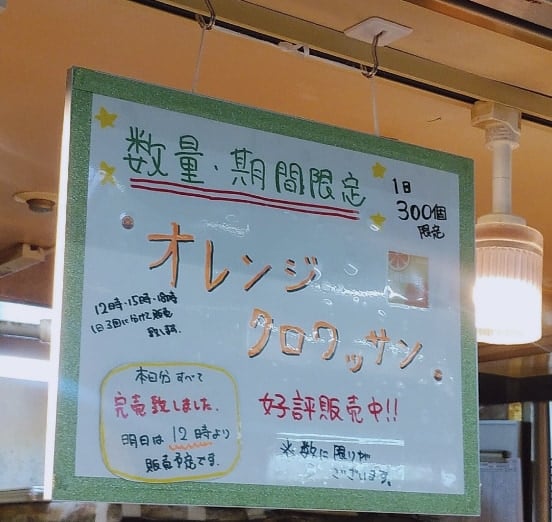 数量・期間限定
1日
300個
限定
オレンジ
クロワッサン
12時・15時・18時
1日3回に分けて販売
致します。
本日分すべて
完売致しました。
明日は12時より
販売予定です。
好評販売中!!
※数に限りが
ございます。